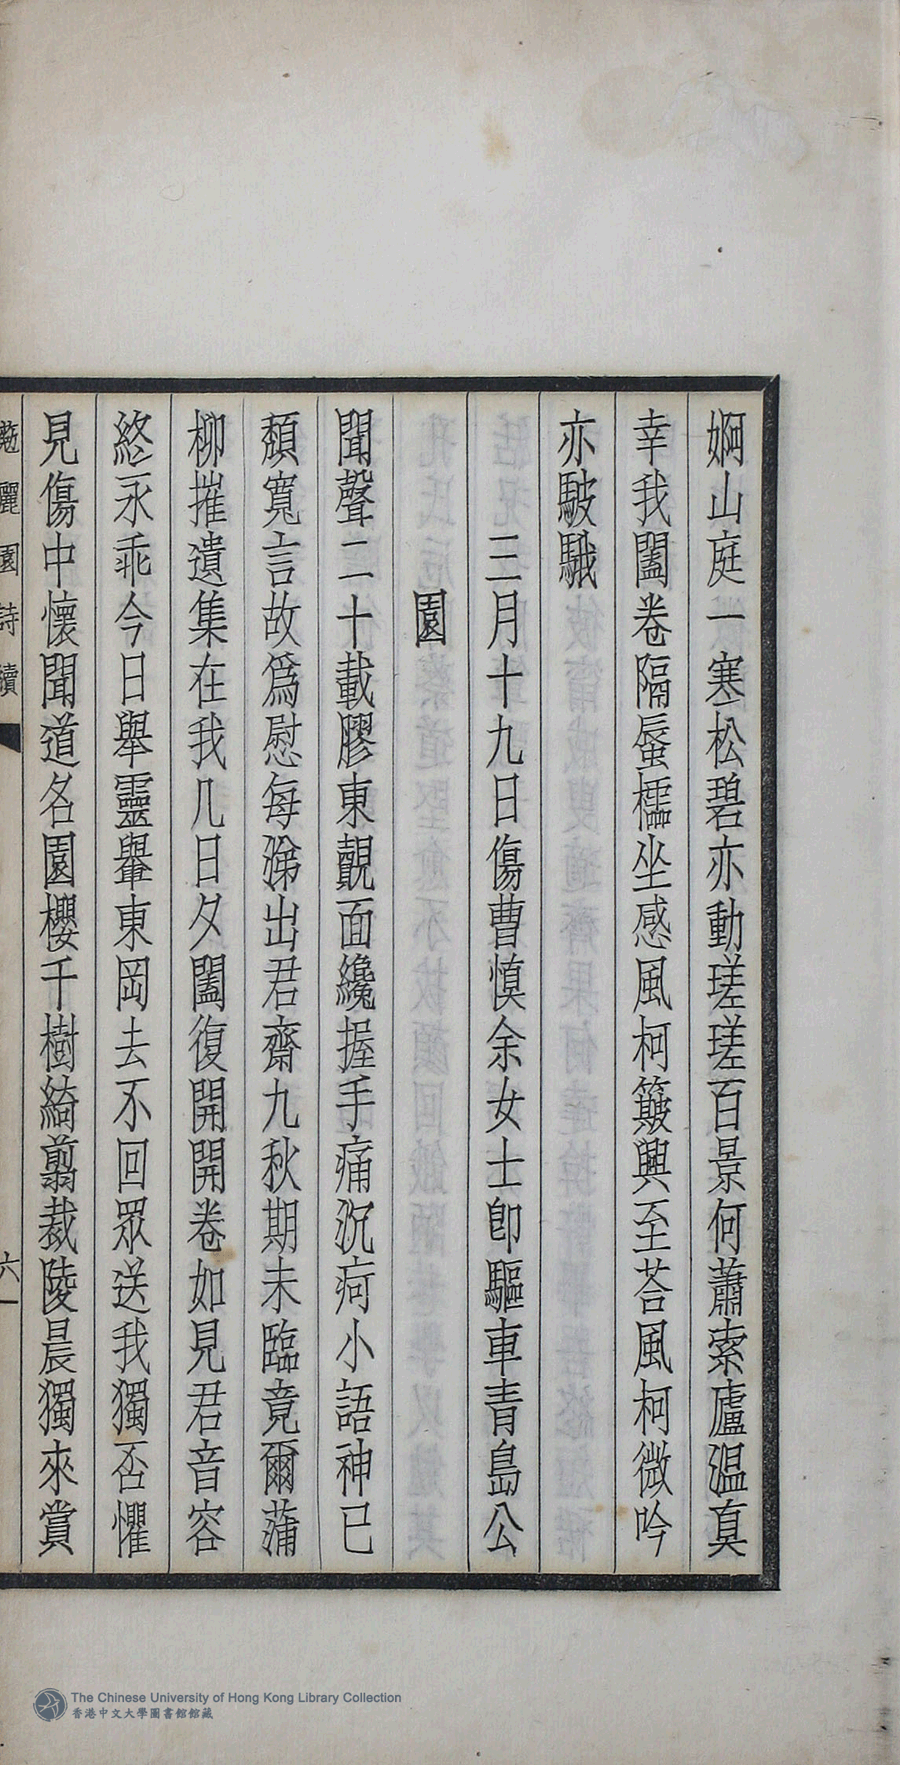 婀山庭一寒松碧亦動瑳瑳百景何蕭索廬溫真
幸我闔卷隔蜃櫺坐感風柯簸興至荅風柯微吟
亦駊騀
三月十九日傷曹慎余女士卽驅車青島公
園
聞聲二十載膠東覯面纔握手痛沉疴小語神已
頹寬言故爲慰每涕出君齋九秋期未臨竟爾蒲
柳摧遺集在我几日夕闔復開開卷如見君音容
終永乖今日舉靈轝東岡去不回眾送我獨否懼
見傷中懷聞道名園櫻千樹綺翦裁陵晨獨來賞
麗園詩續
六
The Chinese University of Hong Kong Library Collection
香港中文大學圖書館館藏